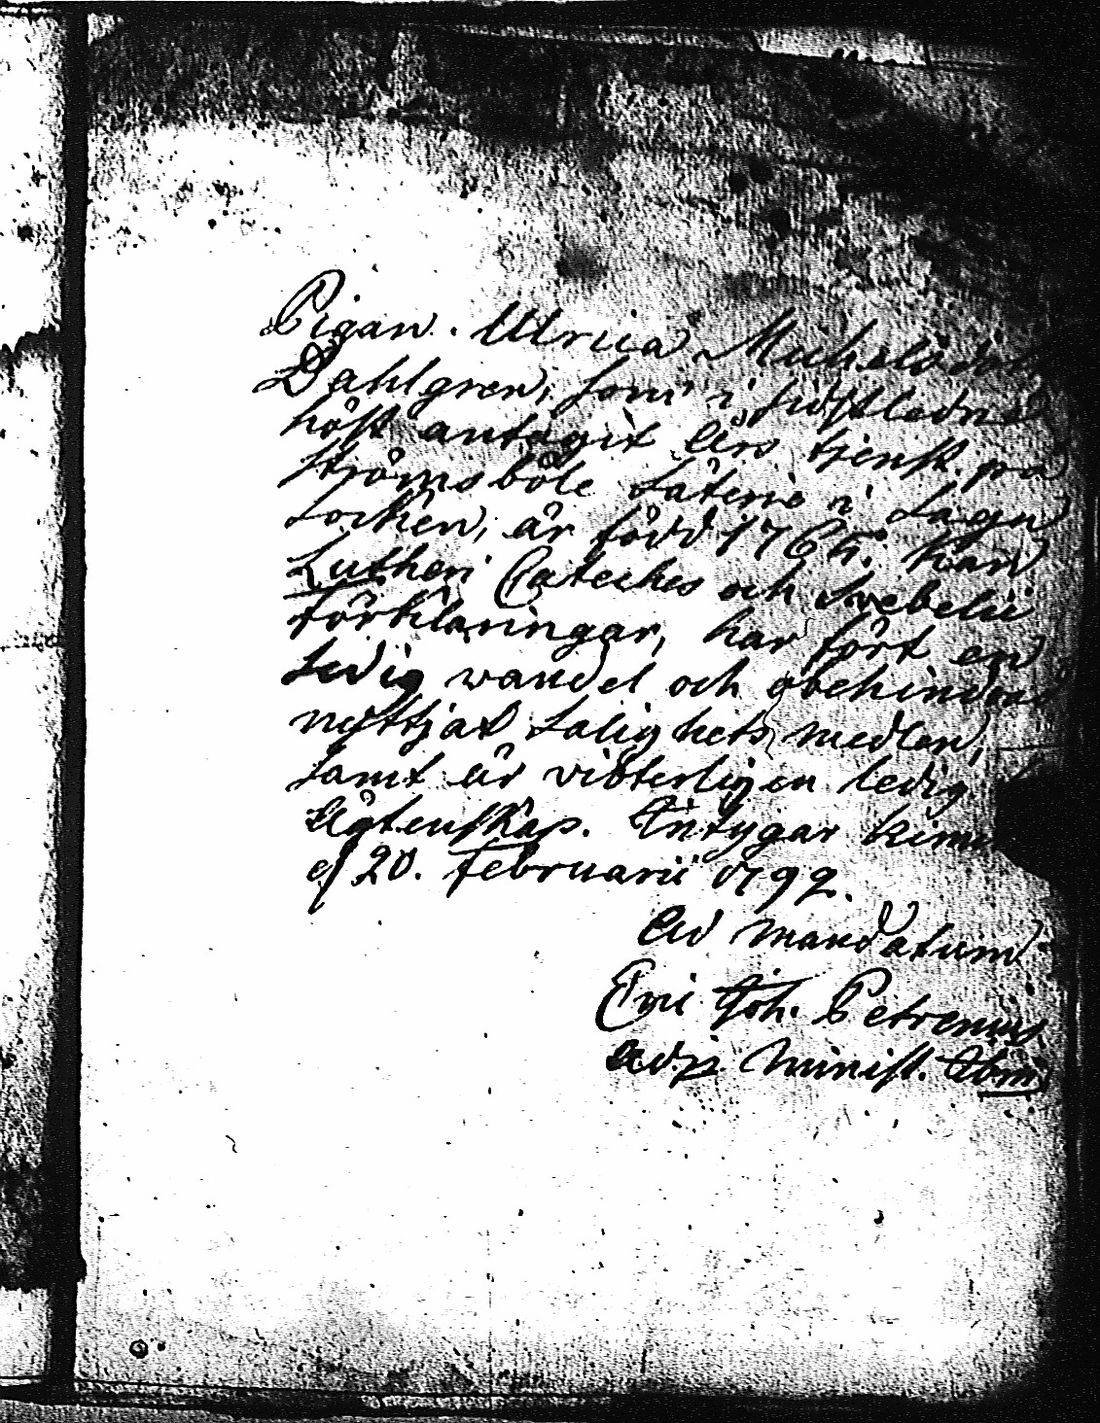 Pigan. Ulrica Michelsdott
Dahlgren, som i sidstledne
höst antagit års tjenst på
Strömsböle Säterie i Sagu
Socken, är född 1765. kan
Lutheri Cateches och Svebelii
Förklaringar, har fört en
sedig wandel och obehindrad
nyttjat Salighets medlen,
samt är vitterligen ledig
Ägtenskap. Intygar Kimi
d. 20. Februarii 1792.
Ad mandatum
Joh. Petrenius
Adj. Minist.